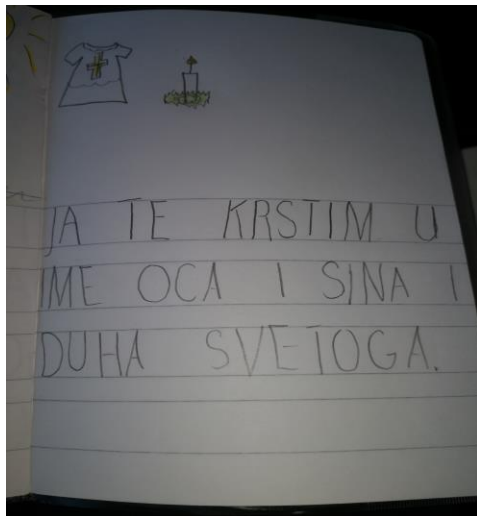 JA TE KRSTIM U
IME OCA I SINA I
DUHA SVETOGA.